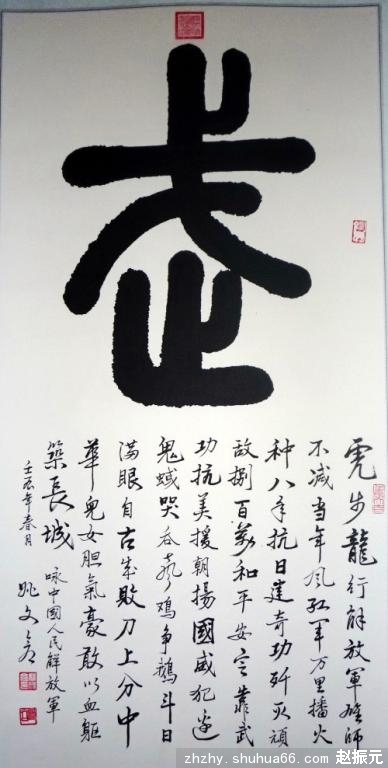 武
虎步龍行解放軍雄師
不减当年风红军万里播火
种八年抗日建奇功歼灭顽
敌捌百萬和平安定靠武
功抗美援朝揚國威犯边
鬼蜮哭吞声鸡争鹅斗日
满眼自古成敗刀上分中
華兒女胆氣豪敢以血軀
築長城 咏中國人民解放軍
壬辰年春月 姚文
zhzhy.shuhua66.com 赵振元